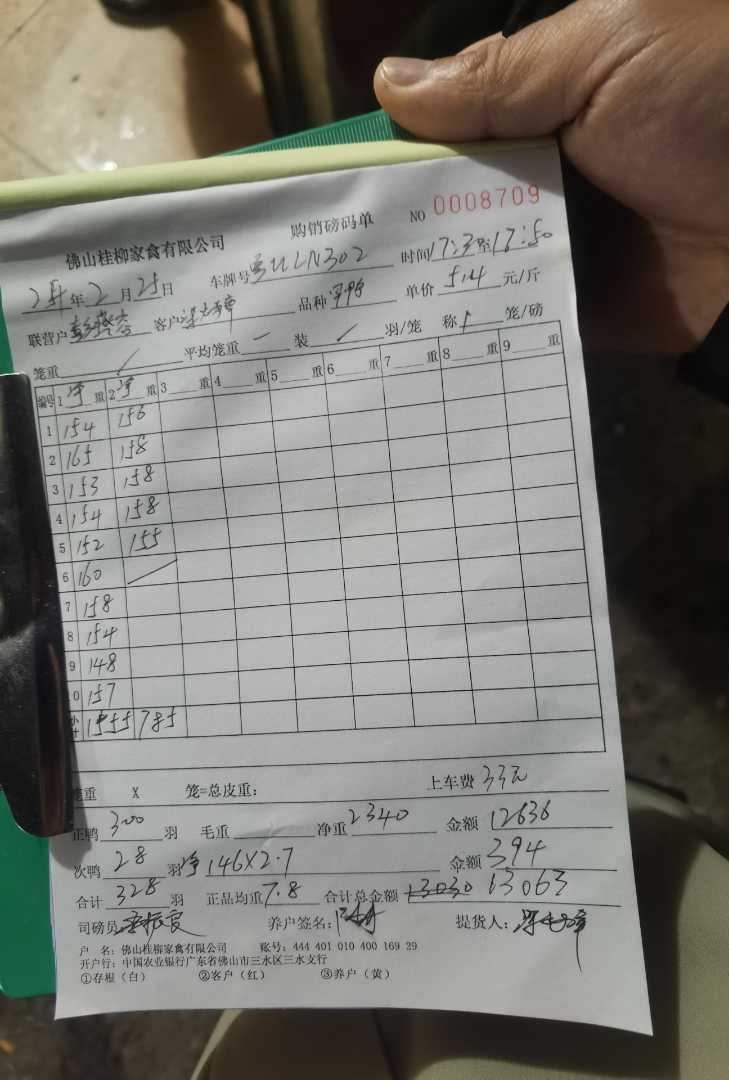 佛山桂柳家禽有限公司 购销磅码单 NO 0008709
年 2 月 25 日 车牌号 时间 17:3 至 17:50
联营户 客户 品种 单价 5.4 元/斤
笼重 / 平均笼重 一 装 / 羽/笼 称 / 笼/磅
编号 1 净 重 2 净 重 3 重 4 重 5 重 6 重 7 重 8 重 9 重
1 154 156
2 165 158
3 153 158
4 154 158
5 152 155
6 160 /
7 158
8 154
9 148
0 157
小计 1555 785
笼重 X 笼=总皮重: 上车费 33元
正鸭 300 羽 毛重 净重 2340 金额 12636
次鸭 28 羽 净 146X2.7 金额 394
合计 328 羽 正品均重 7.8 合计总金额 13030 13063
司磅员 养户签名: 提货人:
户 名: 佛山桂柳家禽有限公司 账号: 444 401 010 400 169 29
开户行: 中国农业银行广东省佛山市三水区三水支行
①存根（白） ②客户（红） ③养户（黄）